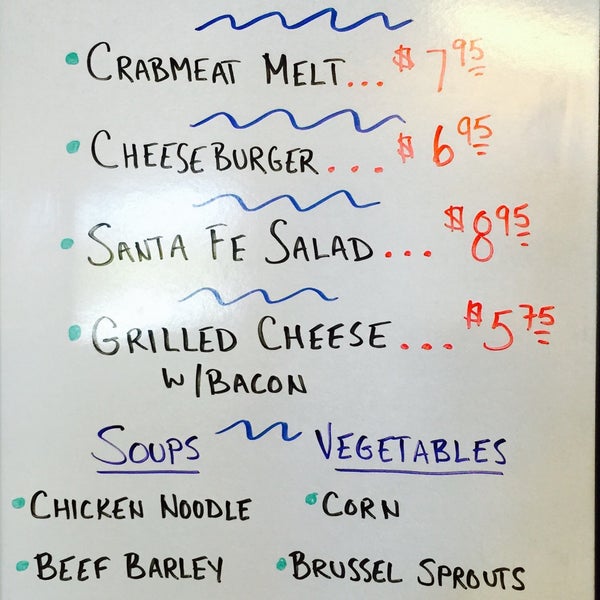 • CRABMEAT MELT... $7.95
• CHEESEBURGER... $6.95
• SANTA FE SALAD... $8.95
• GRILLED CHEESE... $5.75
W/BACON
SOUPS VEGETABLES
• CHICKEN NOODLE • CORN
• BEEF BARLEY • BRUSSEL SPROUTS